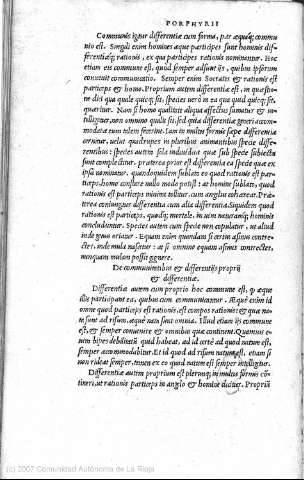 PORPHYRII
Communis igitur differentiæ cum forma, par æquaq́; commu
nio est. Singuli enim homines æque participes sunt hominis dif-
ferentiæq́; rationis, ex qua participes rationis nominantur. Hoc
etiam eis commune est, quod semper adsunt ijs, quibus ipsorum
constituit communicatio. Semper enim Socrates et rationis est
particeps & homo. Proprium autem differentiæ est, in quæstio-
ne dici qua quale quicq́; sit, speciei vero in ea qua quid quicq́; sit,
quæritur. Non si homo qualitas aliqua affectus sumetur &
intelligitur, non omnino qualis sit, sed quia differentiæ generi accom-
modatæ eum talem fecerint. Iam in multis formis sæpe differentia
cernitur, uelut quadrupes in pluribus animantibus specie diffe-
rentibus: species autem sola indiuidua quæ sub specie subiecta
sunt complectitur. præterea prior est differentia ea specie quæ ex
ipsa nominatur. quandoquidem sublato eo quod rationis est par-
ticeps, homo consistere nullo modo possit: at homine sublato, quod
rationis est particeps minime tollitur cum angelus cohæreat. Præ-
terea coniungitur differentia cum alia differentia. Siquidem quod
rationis est particeps, quodq́; mortale, in uim naturamq́; hominis
concluduntur. Species autem cum specie non copulatur, ut aliud
inde genus oriatur. Equum enim quendam si cernis asinus contre-
ctet, inde mula nascetur: at si omnino equam asinus contrectet,
nunquam mulam possit gignere.
De communitatibus & differentijs proprij
& differentiæ.
Differentiæ autem cum proprio hoc commune est, q̃ æque
illis participant ea, quibus cum communicantur. Æque enim id
omne quod particeps est rationis, est compos rationis: & quæ na-
ta sunt ad risum, æque nata sunt omnia. Illud etiam ijs commune
est, & semper conuenire & omnibus quæ continent. Quamuis e-
nim bipes debilitatū quid habeat, ad id certe ad quod natum est,
semper accommodabitur. Et id quod ad risum natum est, etiam si
non rideat semper, tamen ex eo quod natum est semper intelligitur.
Differentiæ autem proprium est plerunq́; in multis formis cō-
tineri, ut rationis particeps in angelo & homine dicitur. Proprij
(c) 2007 Comunidad Autónoma de La Rioja